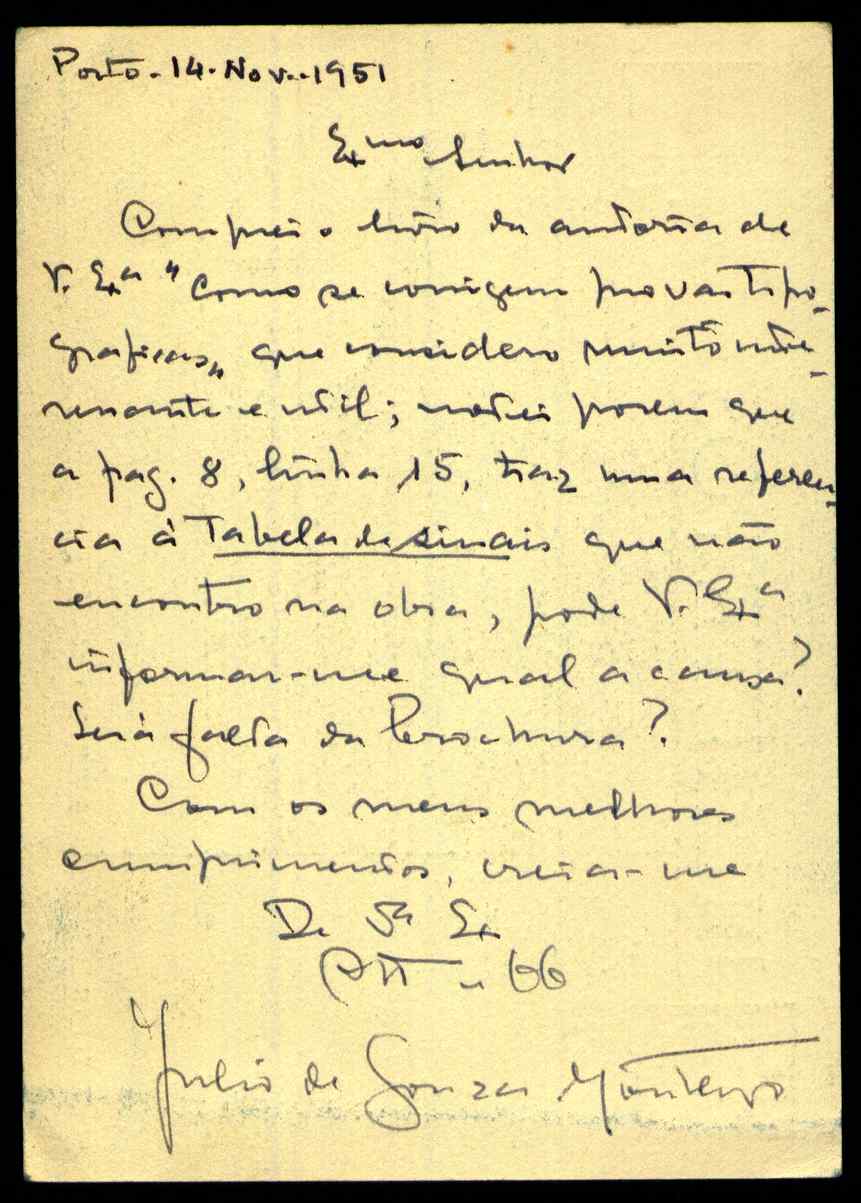 Porto-14-Nov.-1951
Exmo Senhor
Comprei o livro da autoria de
V. Exa "Como se corrigem provas tipo-
graficas„ que considero muito inte-
ressante e util; notei porem que
a pag. 8, linha 15, traz uma referen-
cia à Tabela de sinais que não
encontro na obra, pode V. Exa
informar-me qual a causa?
Será falta da brochura?
Com os meus melhores
cumprimentos, creia-me
De Sa Ex
Julio de Souza Monteiro